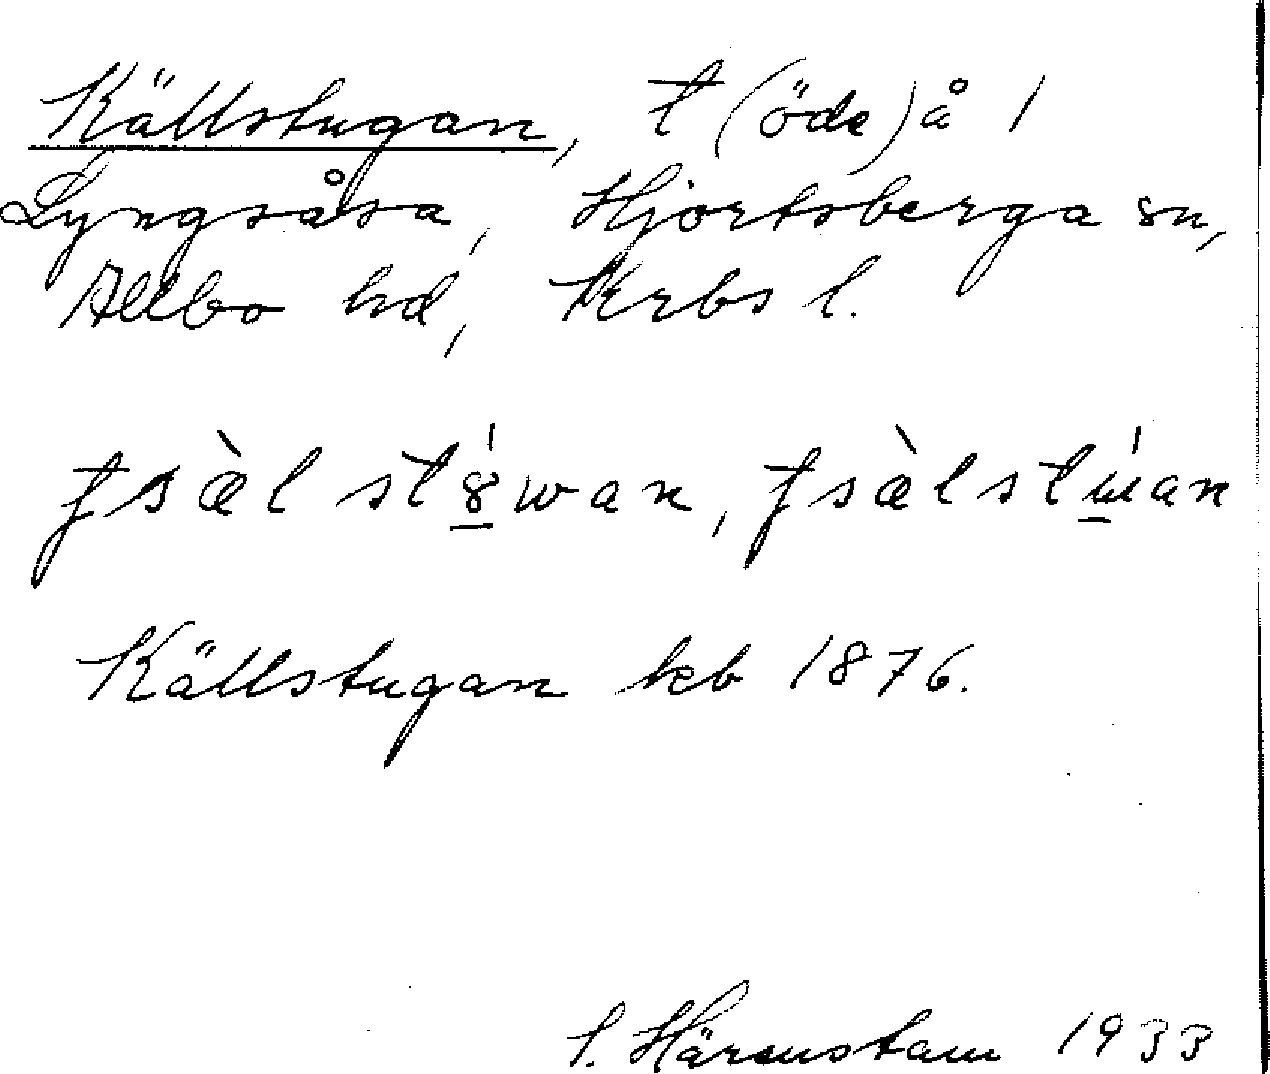 Källstugan, t (öde) å 1
Lyngsåsa, Hjortsberga sn,
Allbo hd, Krbs l.
Källstugan kb 1876.
S. Härenstam 1933